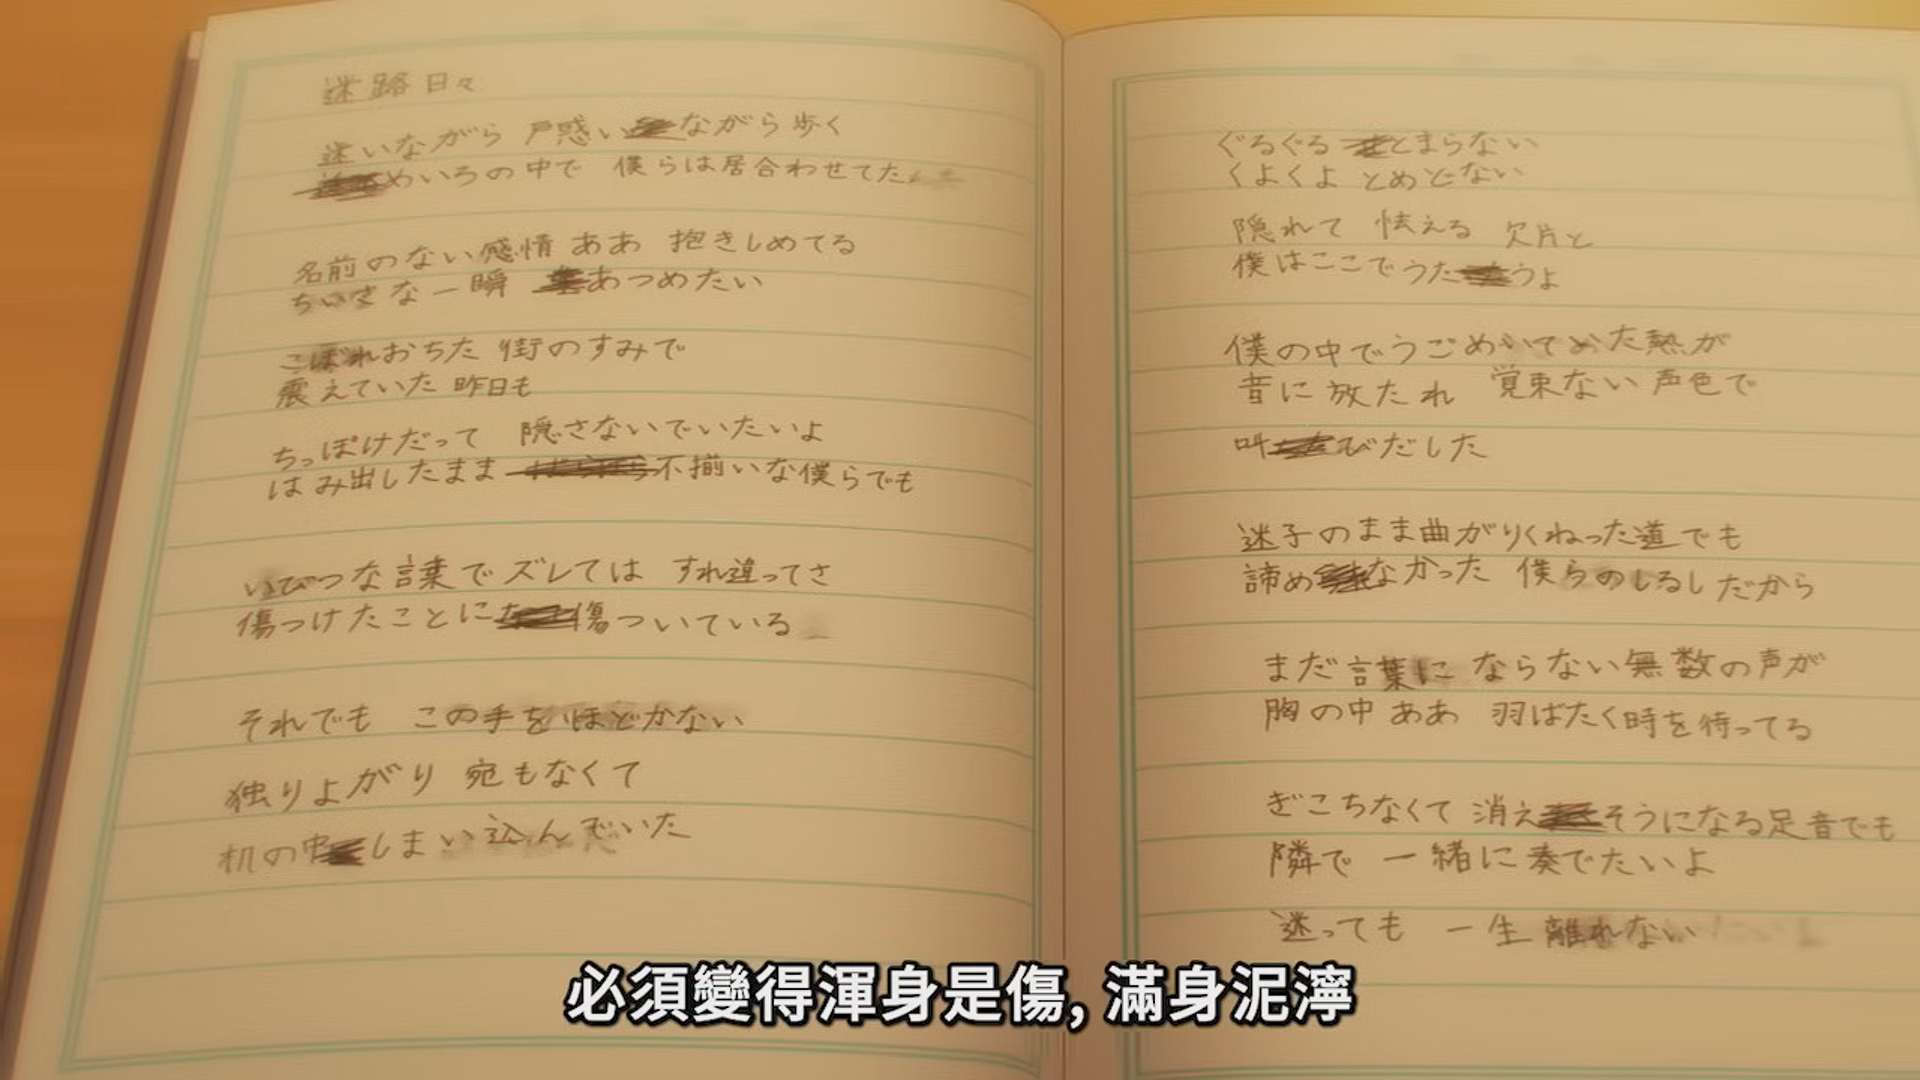 迷路日々
迷いながら 戸惑いながら歩く
めいろの中で 僕らは居合わせてた
名前のない感情 ああ 抱きしめてる
ちいさな一瞬 あつめたい
こぼれおちた 街のすみで
震えていた 昨日も
ちっぽけだって 隠さないでいたいよ
はみ出したまま 不揃いな僕らでも
いびつな言葉で ズレては すれ違ってさ
傷つけたことに傷ついている
それでも この手をほどかない
独りよがり 宛もなくて
机の中しまい込んでいた
ぐるぐる とまらない
くよくよ とめどない
隠れて 怯える 欠片と
僕はここでうたうよ
僕の中でうごめいてた熱が
音に放たれ 覚束ない声色で
叫びだした
迷子のまま曲がりくねった道でも
諦めなかった 僕らのしるしだから
まだ言葉に ならない無数の声が
胸の中 ああ 羽ばたく時を待ってる
ぎこちなくて 消えそうになる足音でも
隣で 一緒に奏でたいよ
迷っても 一生 離れない
必須變得渾身是傷, 滿身泥濘